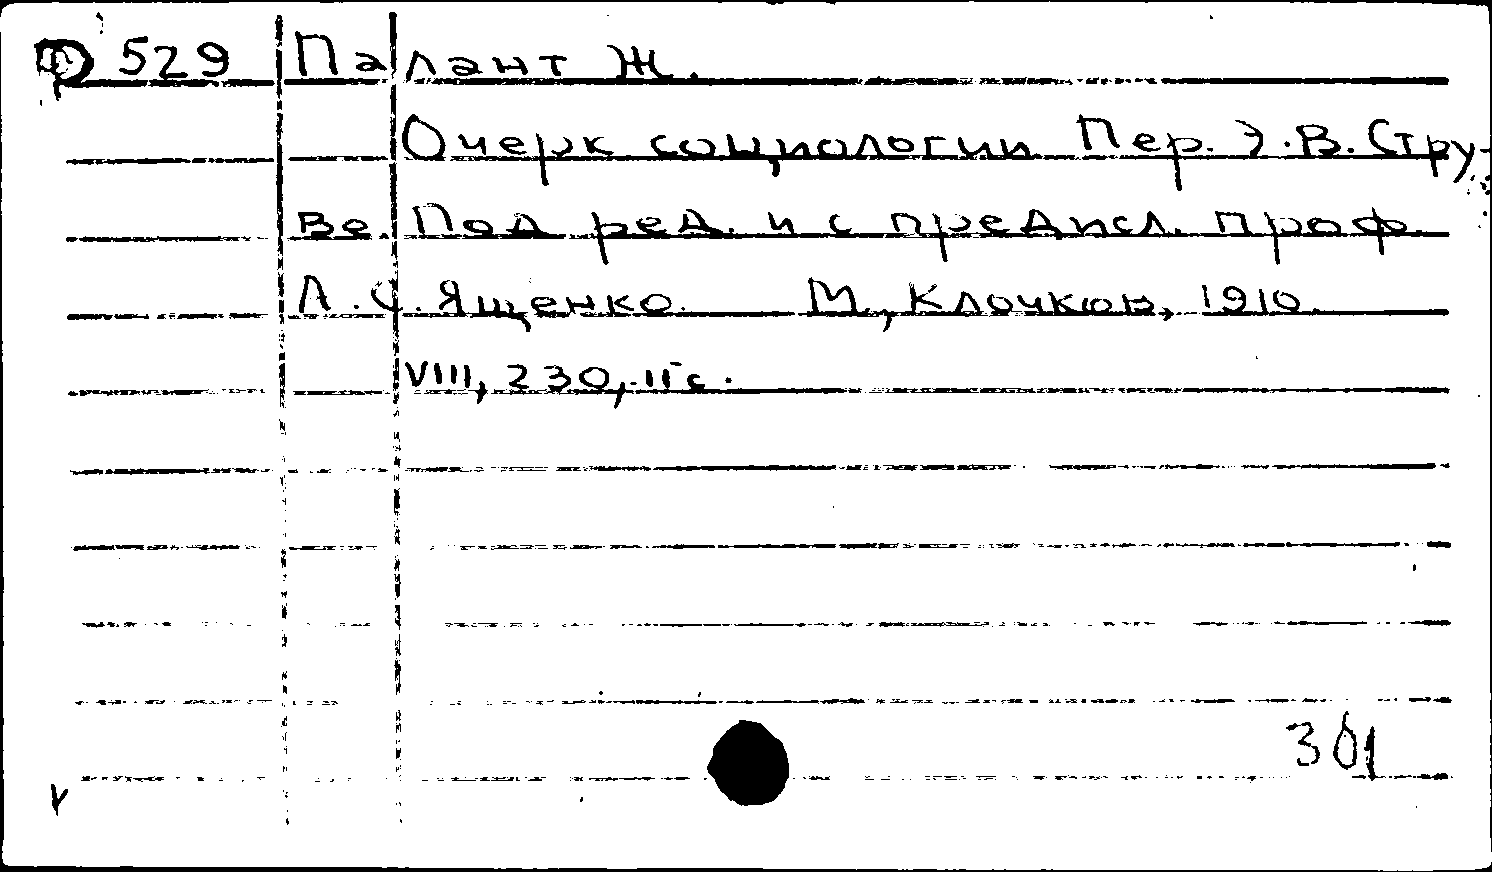 Ф 529 Палант Ж.
Очерк социологии Пер. Э.В. Стру-
ве. Под ред. и с предисл. проф.
Л.С. Ященко. М., Клочков, 1910.
VIII, 230, II с.
301